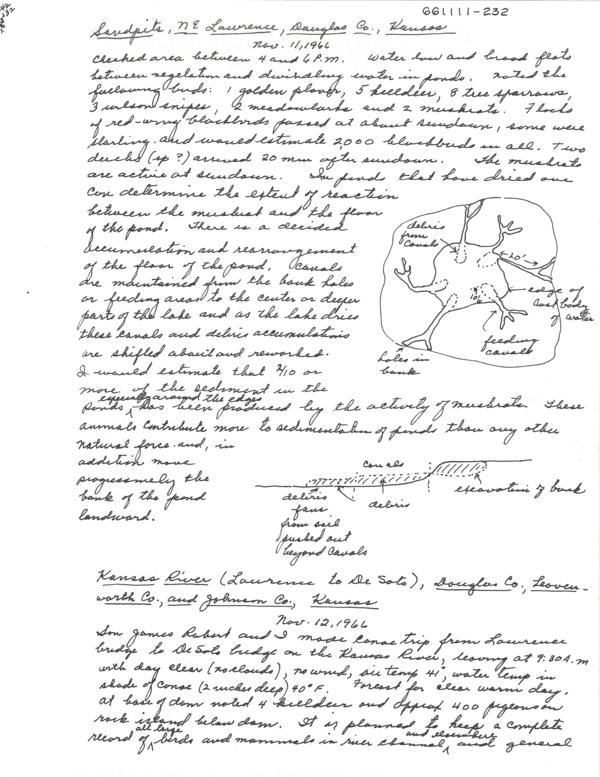 661111-232
Sandpits, NE Lawrence, Douglas Co., Kansas
Nov. 11, 1966
Checked area between 4 and 6 P.M. Water low and broad flats
between vegetation and dwindling water in ponds. Noted the
following birds: 1 golden plover, 5 killdeer, 8 tree sparrows,
3 wilson snipes, 2 meadowlarks and 2 muskrats. Flocks
of red-wing blackbirds passed at about sundown, some were
starling and would estimate 2,000 blackbirds in all. Two
ducks (sp?) arrived 20 min after sundown. The muskrats
are active at sundown. In ponds that have dried one
can determine the extent of reaction
between the muskrat and the floor
of the pond. There is a decided
accumulation and rearrangement
of the floor of the pond. Canals
are maintained from the bank holes
or feeding areas to the center or deeper
parts of the lake and as the lake dries
these canals and debris accumulations
are shifted about and reworked.
I would estimate that 7/10 or
more of the sediment in the
especially around the edges
ponds has been produced by the activity of muskrats. These
animals contribute more to sedimentation of ponds than any other
natural force and, in
addition move
progressively the
bank of the pond
landward.
debris
from
canals
20'
10'
edge of
last body
of water
feeding
canals
holes in
bank
canals
excavation of bank
debris
debris
fans
from soil
pushed out
beyond canals
Kansas River (Lawrence to De Soto), Douglas Co., Leaven-
worth Co., and Johnson Co., Kansas
Nov. 12, 1966
Son James Robert and I made canoe trip from Lawrence
bridge to De Soto bridge on the Kansas River, leaving at 9:30 A.M.
with day clear (no clouds), no wind, air temp 41°, water temp in
shade of canoe (2 inches deep) 40° F. Forecast for clear warm day.
At base of dam noted 4 killdeer and approx 400 pigeons on
rock island below dam. It is planned to keep a complete
all large
and elsewhere
record of birds and mammals in river channel and general